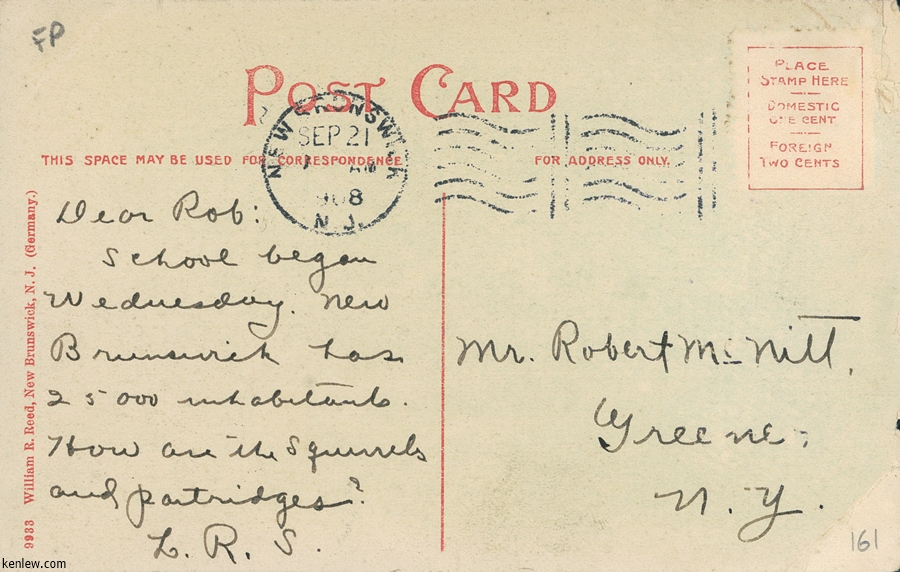 FP
POST CARD
PLACE
STAMP HERE
DOMESTIC
ONE CENT
FOREIGN
TWO CENTS
NEW BRUNSWICK
SEP 21
AM
1908
N.J.
THIS SPACE MAY BE USED FOR CORRESPONDENCE
FOR ADDRESS ONLY.
Dear Rob:
School began
Wednesday. New
Brunswick has
25000 inhabitants.
How are the squirrels
and partridges?
L. R. S.
Mr. Robert McNitt,
Greene,
N. Y.
9933 William R. Reed, New Brunswick, N. J. (Germany.)
161
kenlew.com